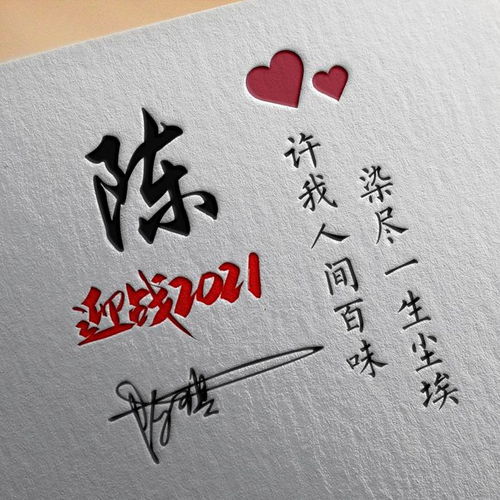 陈
迎战2021
许我人间百味
染尽一生尘埃